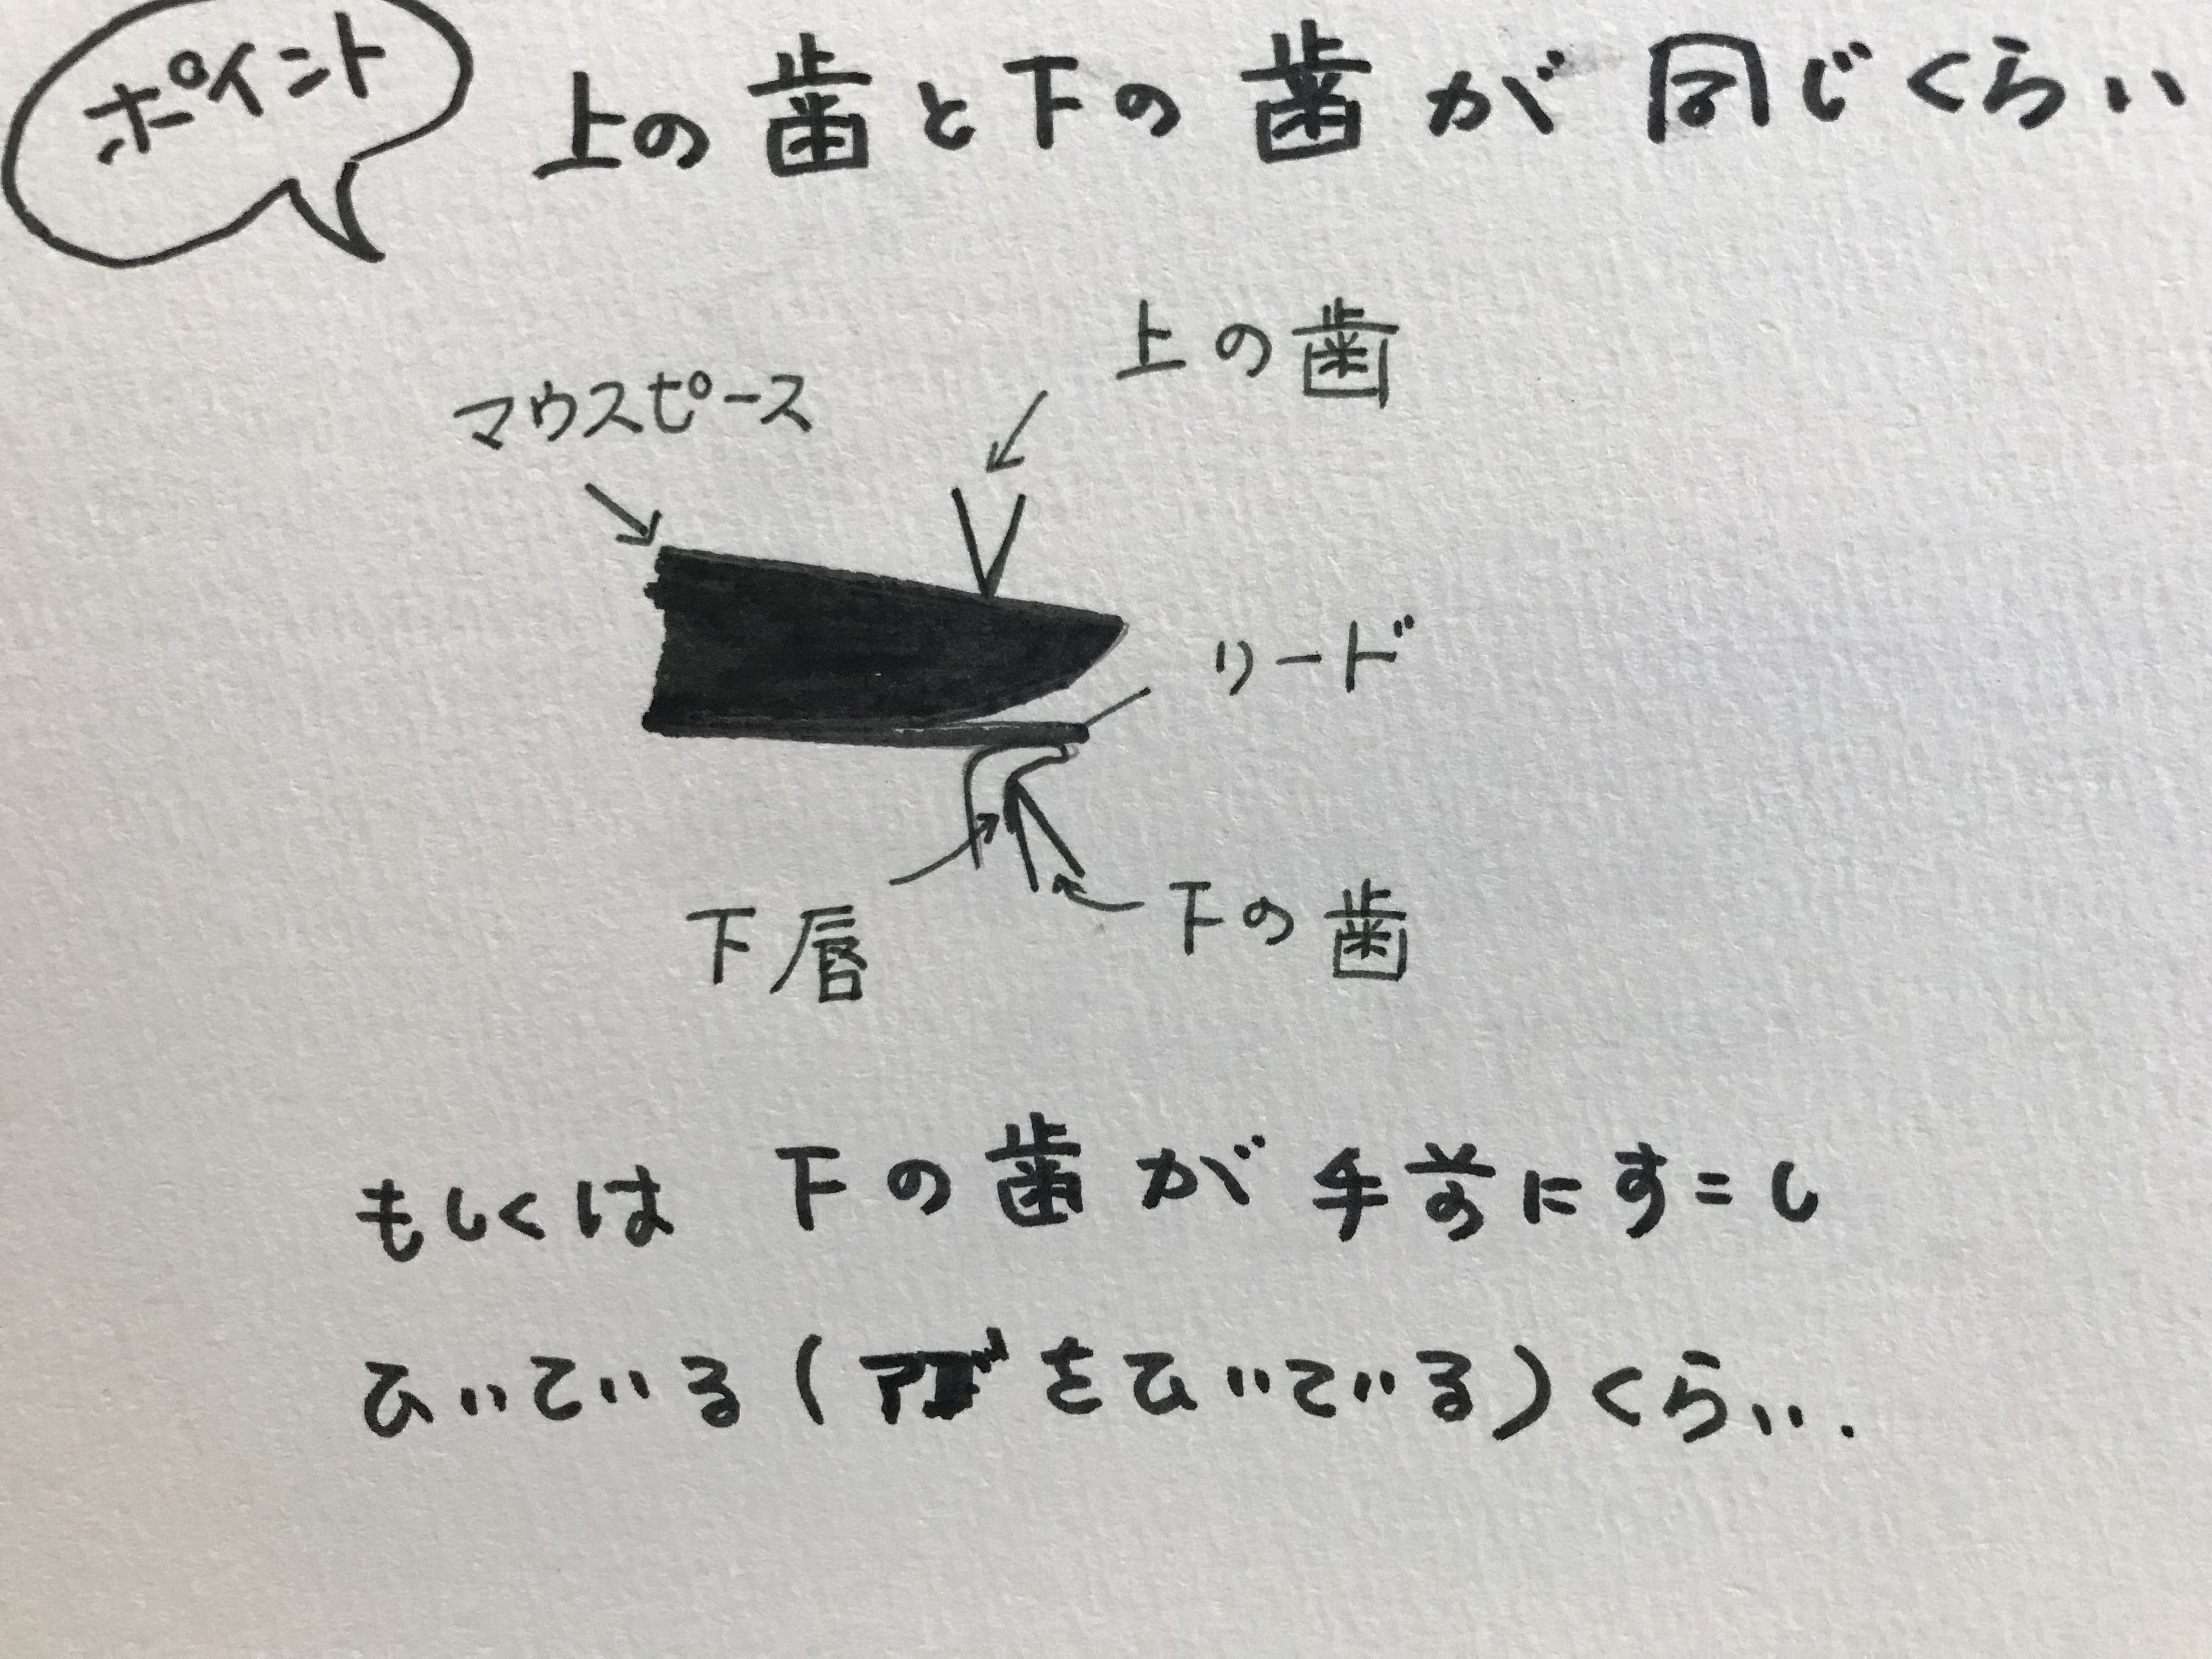 ポイント
上の歯と下の歯が同じくらい
上の歯
マウスピース
リード
下唇
下の歯
もしくは下の歯が手前にすこし
ひいている(アゴをひいている)くらい.